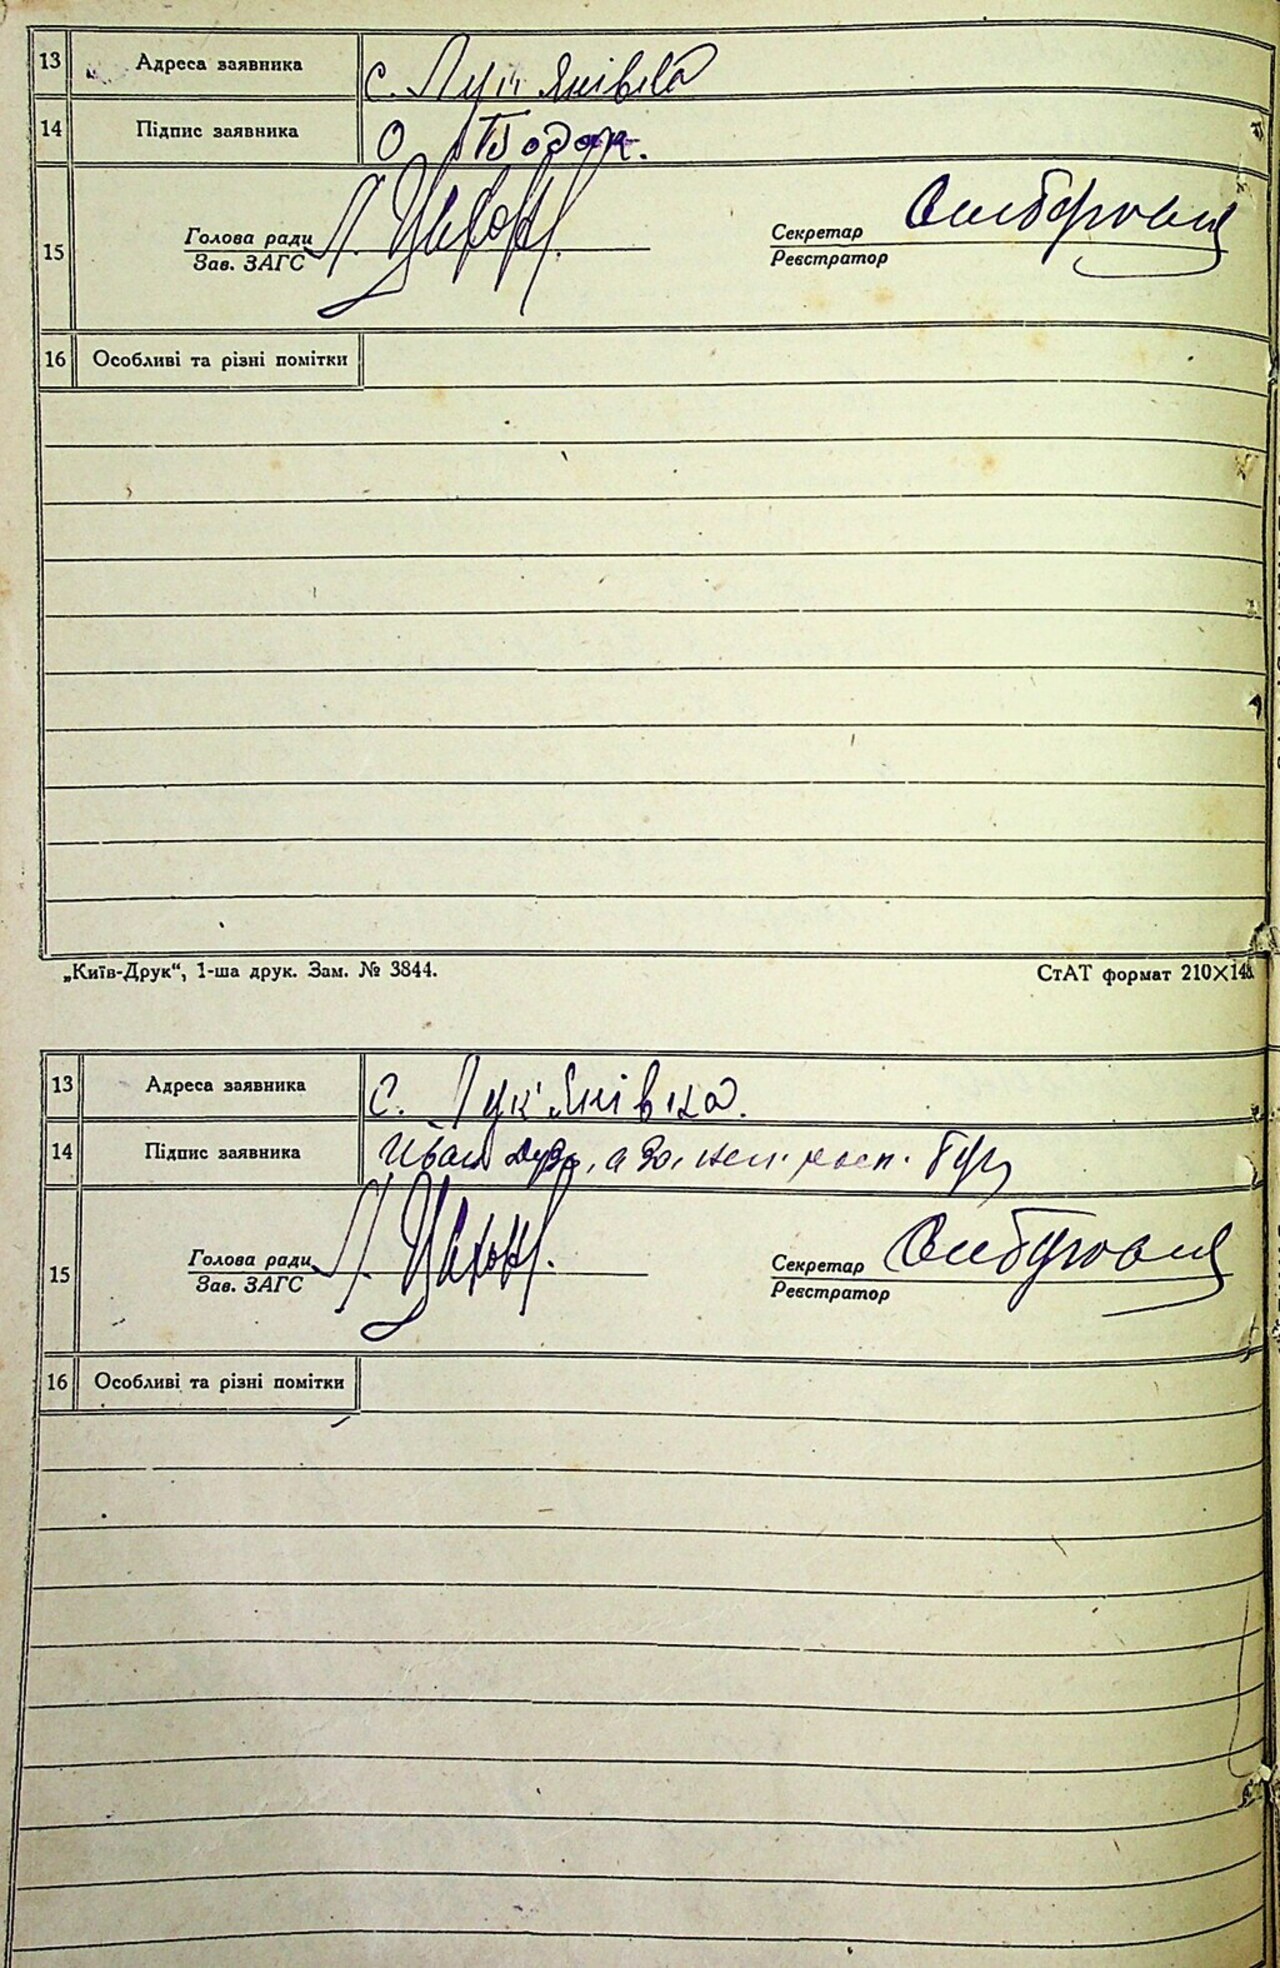 13 Адреса заявника с. Лук'янівка
14 Підпис заявника О Бодак.
15 Голова ради Секретар
Зав. ЗАГС Реєстратор
16 Особливі та різні помітки
„Київ-Друк“, 1-ша друк. Зам. № 3844. СтАТ формат 210×148.
13 Адреса заявника с. Лук'янівка.
14 Підпис заявника Иван а за
15 Голова ради Секретар
Зав. ЗАГС Реєстратор
16 Особливі та різні помітки